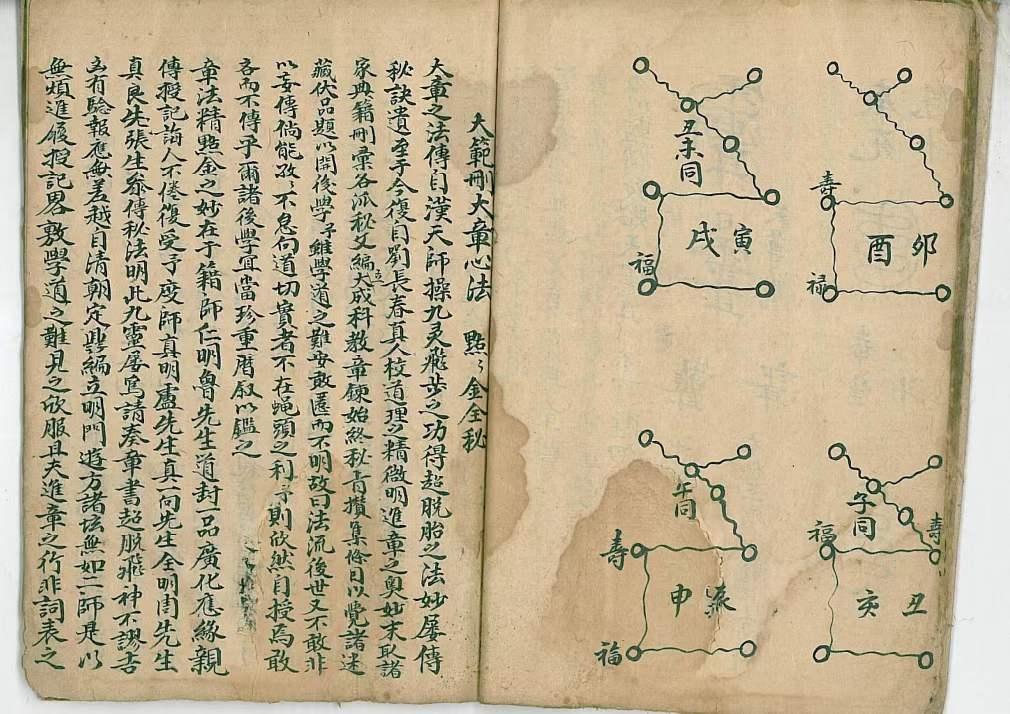 卯
酉
壽
祿
寅
戌
丑未同
福
丑
亥
子同
壽
福
申
午同
壽
福
大範刪大章心法 點々金全秘
大章之法傳自漢天師操九灵飛步之功得超脫胎之法妙屢傳
秘訣遺至于今復自劉長春真人校道理之精微明進章之奧妙末取諸
家典籍刪彙各派秘文編大成科教章鍊始終秘旨攢集條目以覺諸迷
藏伏品題以開後學予雖學道之難安敢匿而不明故曰法流後世又不敢非
以妄傳倘能孜々不怠向道切實者不在蝇頭之利予則欣然自授焉敢
吝而不傳乎爾諸後學宜當珍重曆叙以鑑之
章法精點金之妙在于籍師仁明魯先生道封一品廣化應緣親
傳授記誨人不倦復受予度師真明盧先生真一向先生全明周先生
真良先張生叅傳秘法明此九靈屡寫請奏章書超脫飛神不謬吉
凶有驗報應無差越自清朝定鼎編立明門遊方諸坛無如二師是以
無煩進領授記畧敷學道之難見之欣服且夫進章之行非詞表之